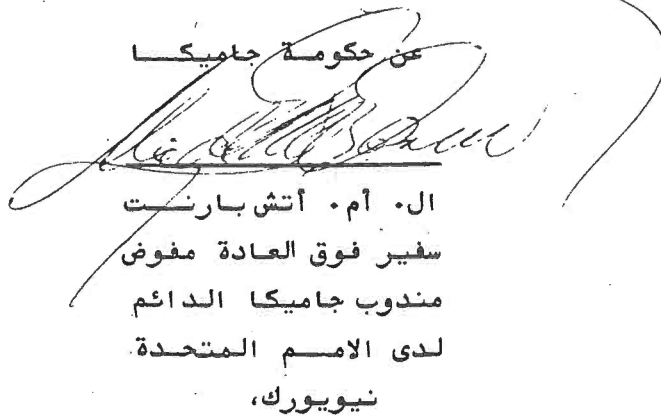 عن حكومة جاميكا
ال. أم. أتش بارنت
سفير فوق العادة مفوض
مندوب جاميكا الدائم
لدى الامم المتحدة
نيويورك،